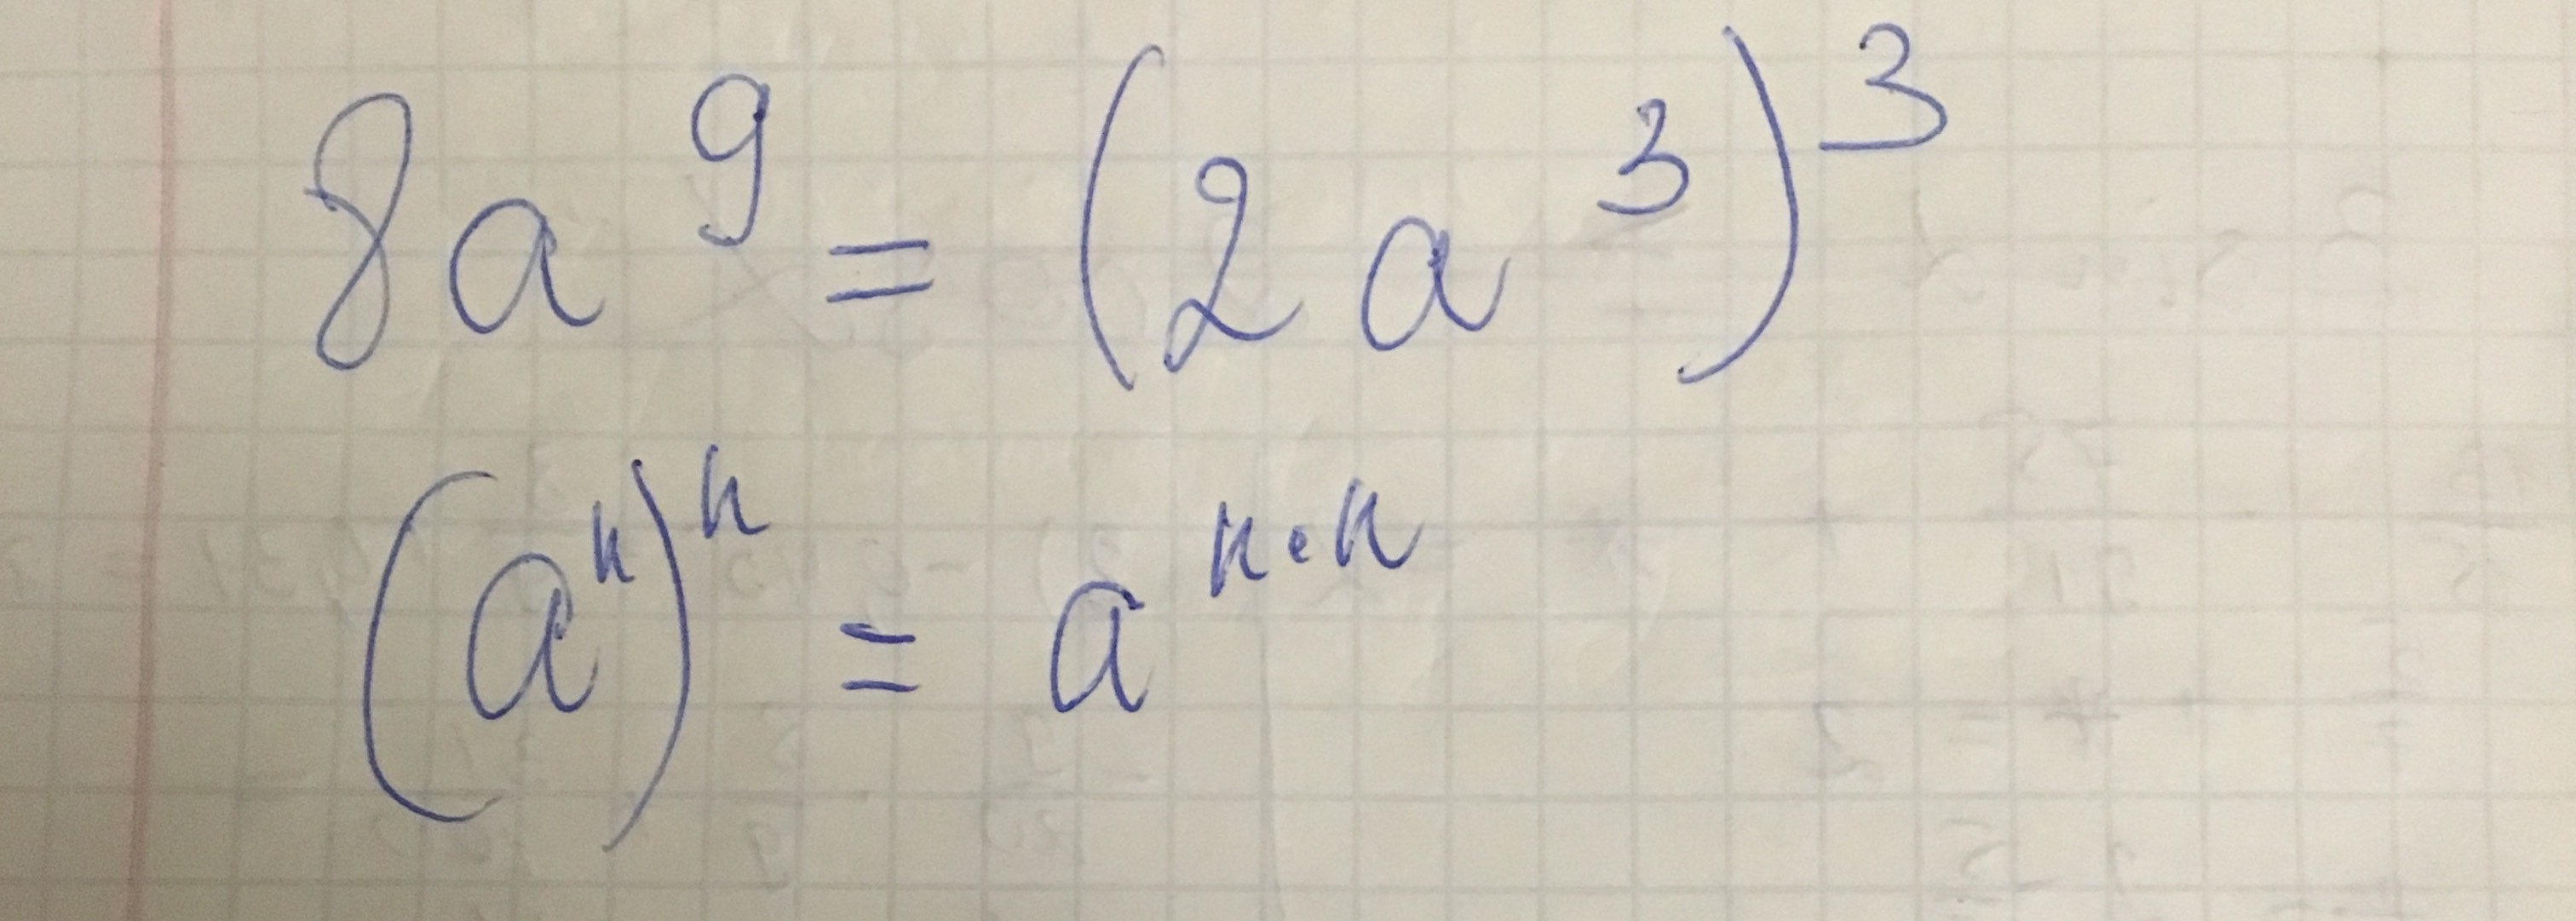 8a⁹ = (2a³)³
(aⁿ)ⁿ = aⁿ·ⁿ